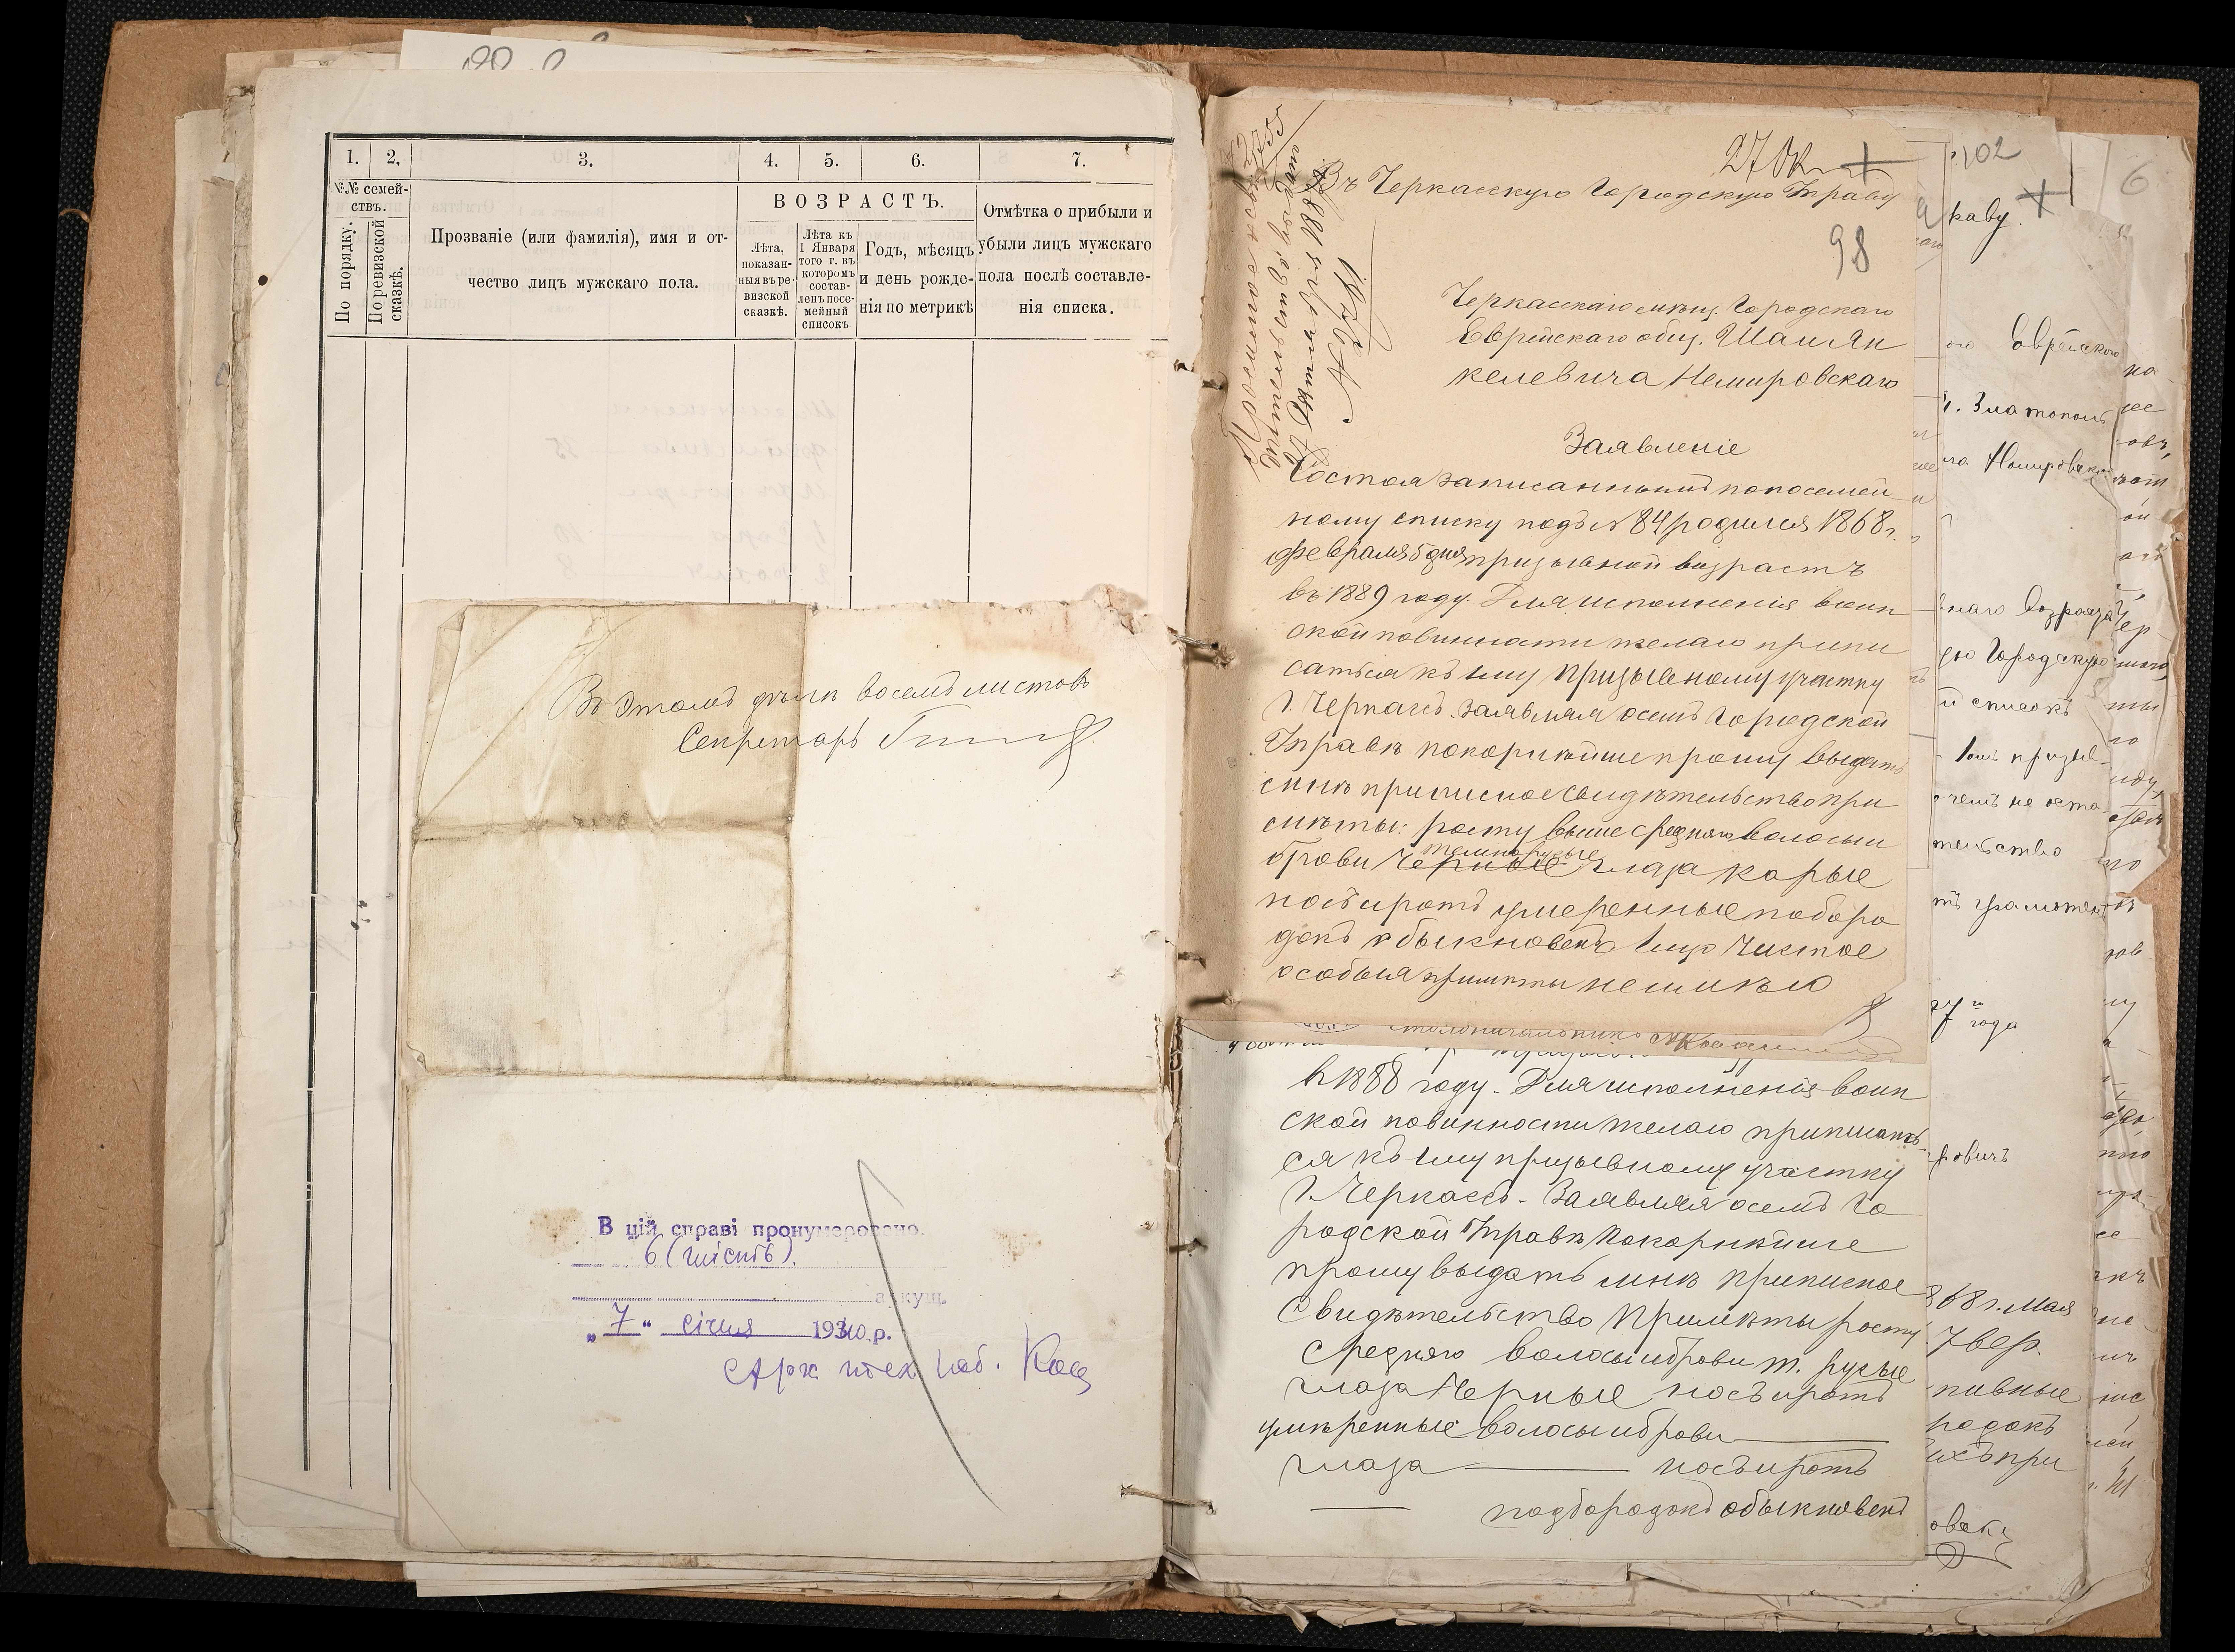 1. 2. 3. 4. 5. 6. 7.
№№ семей-
ствъ.
По порядку.
По ревизской
сказкѣ.
Прозваніе (или фамилія), имя и от-
чество лицъ мужскаго пола.
ВОЗРАСТЪ.
Лѣта,
показан-
ныя въ ре-
визской
сказкѣ.
Лѣта къ
1 Января
того г. въ
которомъ
состав-
ленъ посе-
мейный
списокъ
Годъ, мѣсяцъ
и день рожде-
нія по метрикѣ
Отмѣтка о прибыли и
убыли лицъ мужскаго
пола послѣ составле-
нія списка.
Въ этомъ дѣлѣ восемь листовъ
Секретарь
В цій справі пронумеровано
6 (шість).
аркуш.
„7“ січня 1940 р.
27 Ок
Въ Черкасскую Городскую Управу
98
Черкасскаго мѣщ. Городскаго
Еврейскаго общ. Шаи Ян
келевича Немировскаго
Заявленіе
Состоя записанный по посемей
ному списку подъ № 84 родился 1868 г.
февраля 5 дня призывной возрастъ
въ 1889 году. Для исполненія воин
ской повинности желаю припи
саться къ 1му призывному участку
г. Черкасъ. Заявляя о семъ Городской
Управѣ покорнѣйше прошу выдать
мнѣ приписное свидѣтельство при
мѣты: росту выше средняго волосы и
брови черные темнорусые глаза карые
носъ и ротъ умеренные подборо
докъ обыкновен лицо чистое
особыя примѣты не имѣю
столоначальникъ
в 1888 году. Для исполненія воин
ской повинности желаю приписать
ся къ 1му призывному участку
г. Черкасъ. Заявляя о семъ Го
родской Управѣ покорнѣйше
прошу выдать мнѣ приписное
свидѣтельство Примѣты росту
средняго волосы и брови т. русые
глаза черные носъ и ротъ
умѣренные волосы и брови
глаза носъ и ротъ
подбородокъ обыкновен
102
6
Еврейского
г. Златополь
Городскую
списокъ
года
68 г. Мая